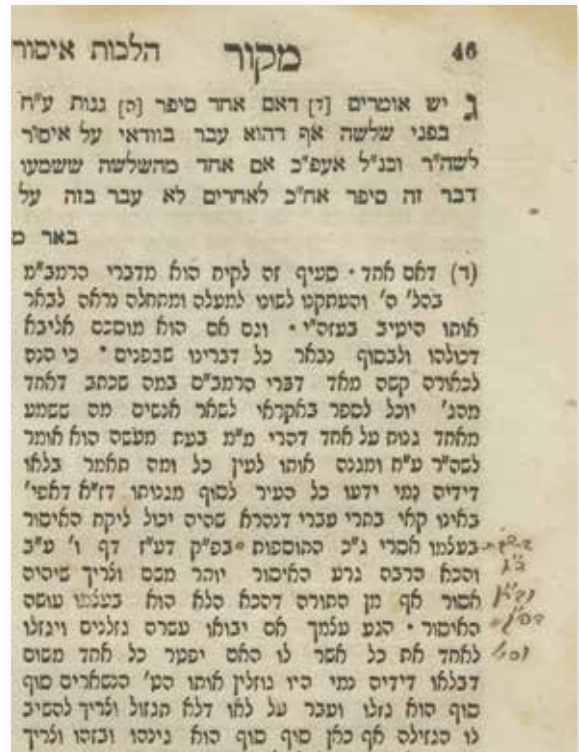 46 מקור הלכות איסור
ג יש אומרים [ד] דאם אחד סיפר [ה] גנות ע"ח
בפני שלשה אף דהוא עבר בוודאי על איסור
לשה"ר וכנ"ל אעפ"כ אם אחד מהשלשה ששמעו
דבר זה סיפר אח"כ לאחרים לא עבר בזה על
באר מ
(ד) דאם אחד. סעיף זה לקוח הוא מדברי הרמב"ם
בהל' ה' והעתקנו לשונו למעלה ומתחלה נראה לבאר
אותו היטיב בעזה"י. וגם אם הוא מוסכם אליבא
דכולהו ולבסוף נבאר כל דברינו שבפנים. כי הנה
לכאורה קשה מאד דברי הרמב"ם במה שכתב דאחד
מהג' יוכל לספר באקראי לשאר אנשים מה ששמע
מאחד גנות על אחד דהרי מ"מ בעת מעשה הוא אומר
לשה"ר ע"ח ומגנה אותו לעין כל ומה תאמר בלאו
דידיה נמי ידעו כל העיר לסוף מגנותו דז"א דאפי'
באינו קאי בתרי עברי דנהרא שהיה יכול ליקח האיסור
בעלמו אסרי ג"כ התוספות בפ"ק דע"ז דף ו' ע"ב
והכא הרבה גרע האיסור יותר משם וצריך שיהיה
אסור אף מן התורה דהכא הלא הוא בעצמו עושה
האיסור. הגע עצמך אם יבואו עשרה גזלנים ויגזלו
לאחד את כל אשר לו האם יפטר כל אחד משום
דבלאו דידיה נמי היו גוזלין אותו הט' הנשארים סוף
סוף הוא גזלו ועבר על לאו דלא תגזול וצריך להשיב
לו הגזילה אף כאן סוף סוף הוא גינהו ובזהו וצריך